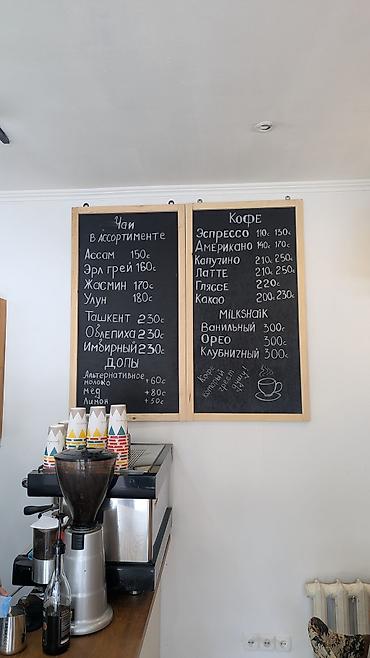 Чаи
в ассортименте
Ассам 150с
Эрл грей 160с
Жасмин 170с
Улун 180с
Ташкент 230с
Облепиха 230с
Имбирный 230с
Допы
Альтернативное
молоко +60с
мёд +80с
Лимон +50с
Кофе
Эспрессо 110с 150с
Американо 140с 170с
Капучино 210с 250с
Латте 210с 250с
Гляссе 220с
Какао 200с 230с
Milkshaik
Ванильный 300с
Орео 300с
Клубничный 300с
Кофе
который
греет
душу!